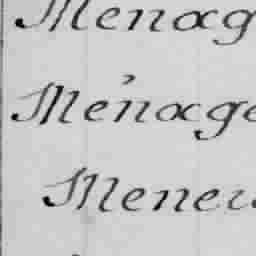 Menag
Menage
Meneu